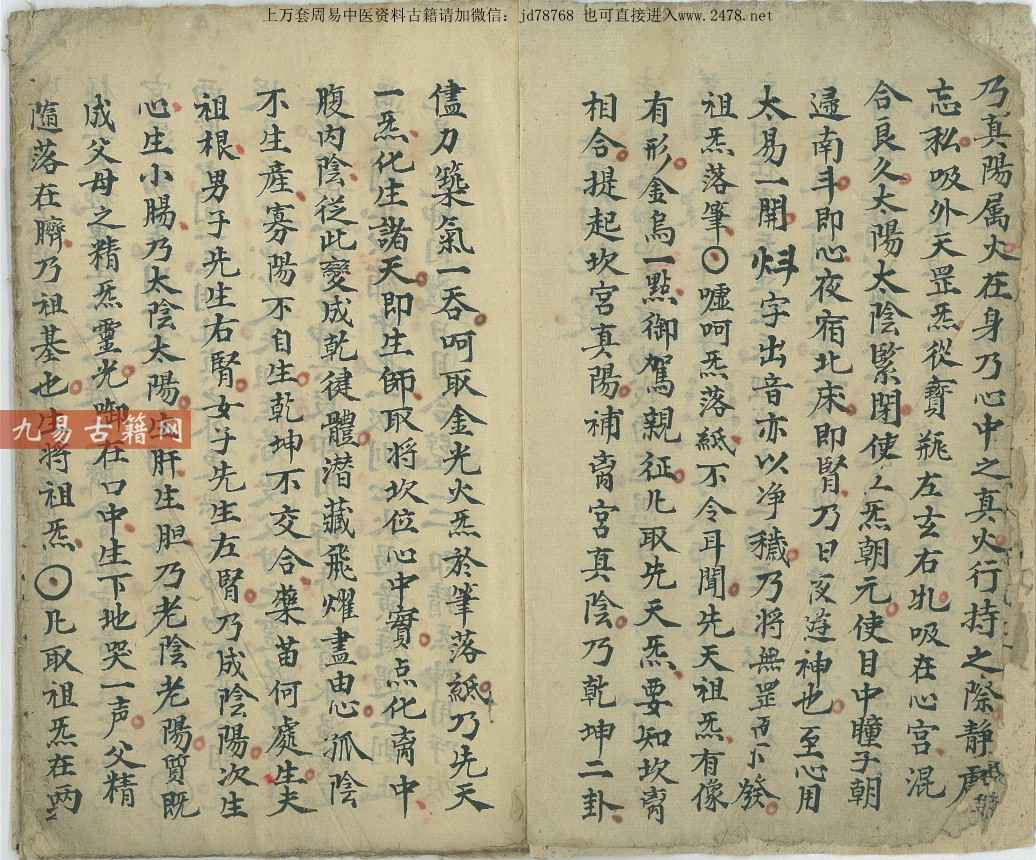 上万套周易中医资料古籍请加微信：jd78768 也可直接进入www.2478.net
乃真陽属火在身乃心中之真火行持之際静
忘私吸外天罡炁從寳瓶左玄右牝吸在心宫混
合良久太陽太陰緊閉使炁朝元使目中瞳子朝
南斗即心夜宿北床即腎乃日夜逰神也至心用
太易一開字出音亦以净穢乃將無罡再下發
祖炁落筆⊙嘘呵炁落紙不令耳聞先天祖炁有像
有形金烏一點御駕親征凡取先天炁要知坎离
相合提起坎宫真陽補离宫真陰乃乾坤二卦
儘力築氣一吞呵取金光火炁於筆落紙乃先天
一炁化庄諸天即生師取将坎位心中實点化离中
腹内陰従此變成乾徤體潜藏飛耀盡由心孤陰
不生產寡陽不自生乾坤不交合藥苗何處生夫
祖根男子先生右腎女子先生左腎乃成陰陽次生
心生小腸乃太陰太陽生肝生胆乃老陰老陽質既
成父母之精炁靈光啣在口中生下地哭一声父精
隨落在臍乃祖基也将祖炁⊙凡取祖炁在两
九易古籍网